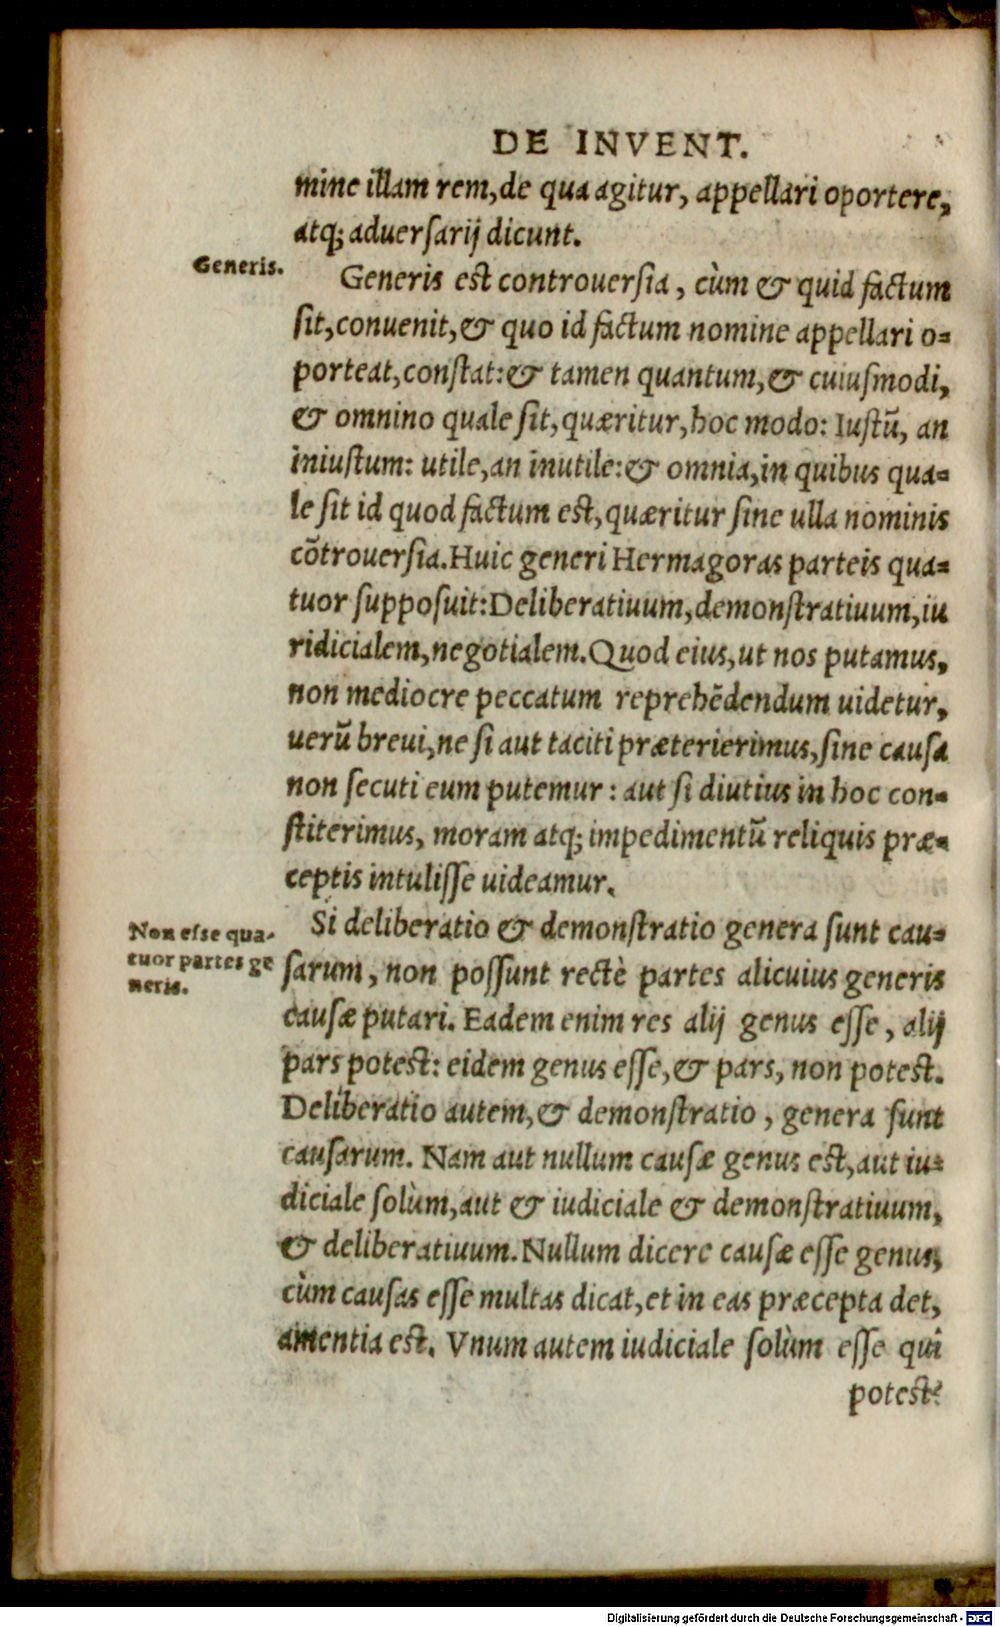 DE INVENT.
mine illam rem, de qua agitur, appellari oportere,
atq; aduersarij dicunt.
Generis.
Generis est controuersia, cùm & quid factum
sit, conuenit, & quo id factum nomine appellari o-
porteat, constat: & tamen quantum, & cuiusmodi,
& omnino quale sit, quæritur, hoc modo: Iustũ, an
iniustum: utile, an inutile: & omnia, in quibus qua-
le sit id quod factum est, quæritur sine ulla nominis
cõtrouersia. Huic generi Hermagoras parteis qua-
tuor supposuit: Deliberatiuum, demonstratiuum, iu
ridicialem, negotialem. Quod eius, ut nos putamus,
non mediocre peccatum reprehẽdendum uidetur,
uerũ breui, ne si aut taciti præterierimus, sine causa
non secuti eum putemur: aut si diutius in hoc con-
stiterimus, moram atq; impedimentũ reliquis præ-
ceptis intulisse uideamur.
Non esse qua-
tuor partes ge
neris.
Si deliberatio & demonstratio genera sunt cau-
sarum, non possunt rectè partes alicuius generis
causæ putari. Eadem enim res alij genus esse, alij
pars potest: eidem genus esse, & pars, non potest.
Deliberatio autem, & demonstratio, genera sunt
causarum. Nam aut nullum causæ genus est, aut iu-
diciale solùm, aut & iudiciale & demonstratiuum,
& deliberatiuum. Nullum dicere causæ esse genus,
cùm causas esse multas dicat, et in eas præcepta det,
amentia est. Vnum autem iudiciale solùm esse qui
potest?
Digitalisierung gefördert durch die Deutsche Forschungsgemeinschaft - DFG